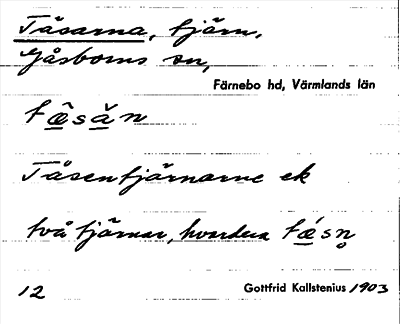 Tåsarna, tjärn,
Gåsborns sn,
Färnebo hd, Värmlands län
tæ̂sǎn
Tåsentjärnarne ek
två tjärnar, hvardera tǽsn̥
12 Gottfrid Kallstenius 1903